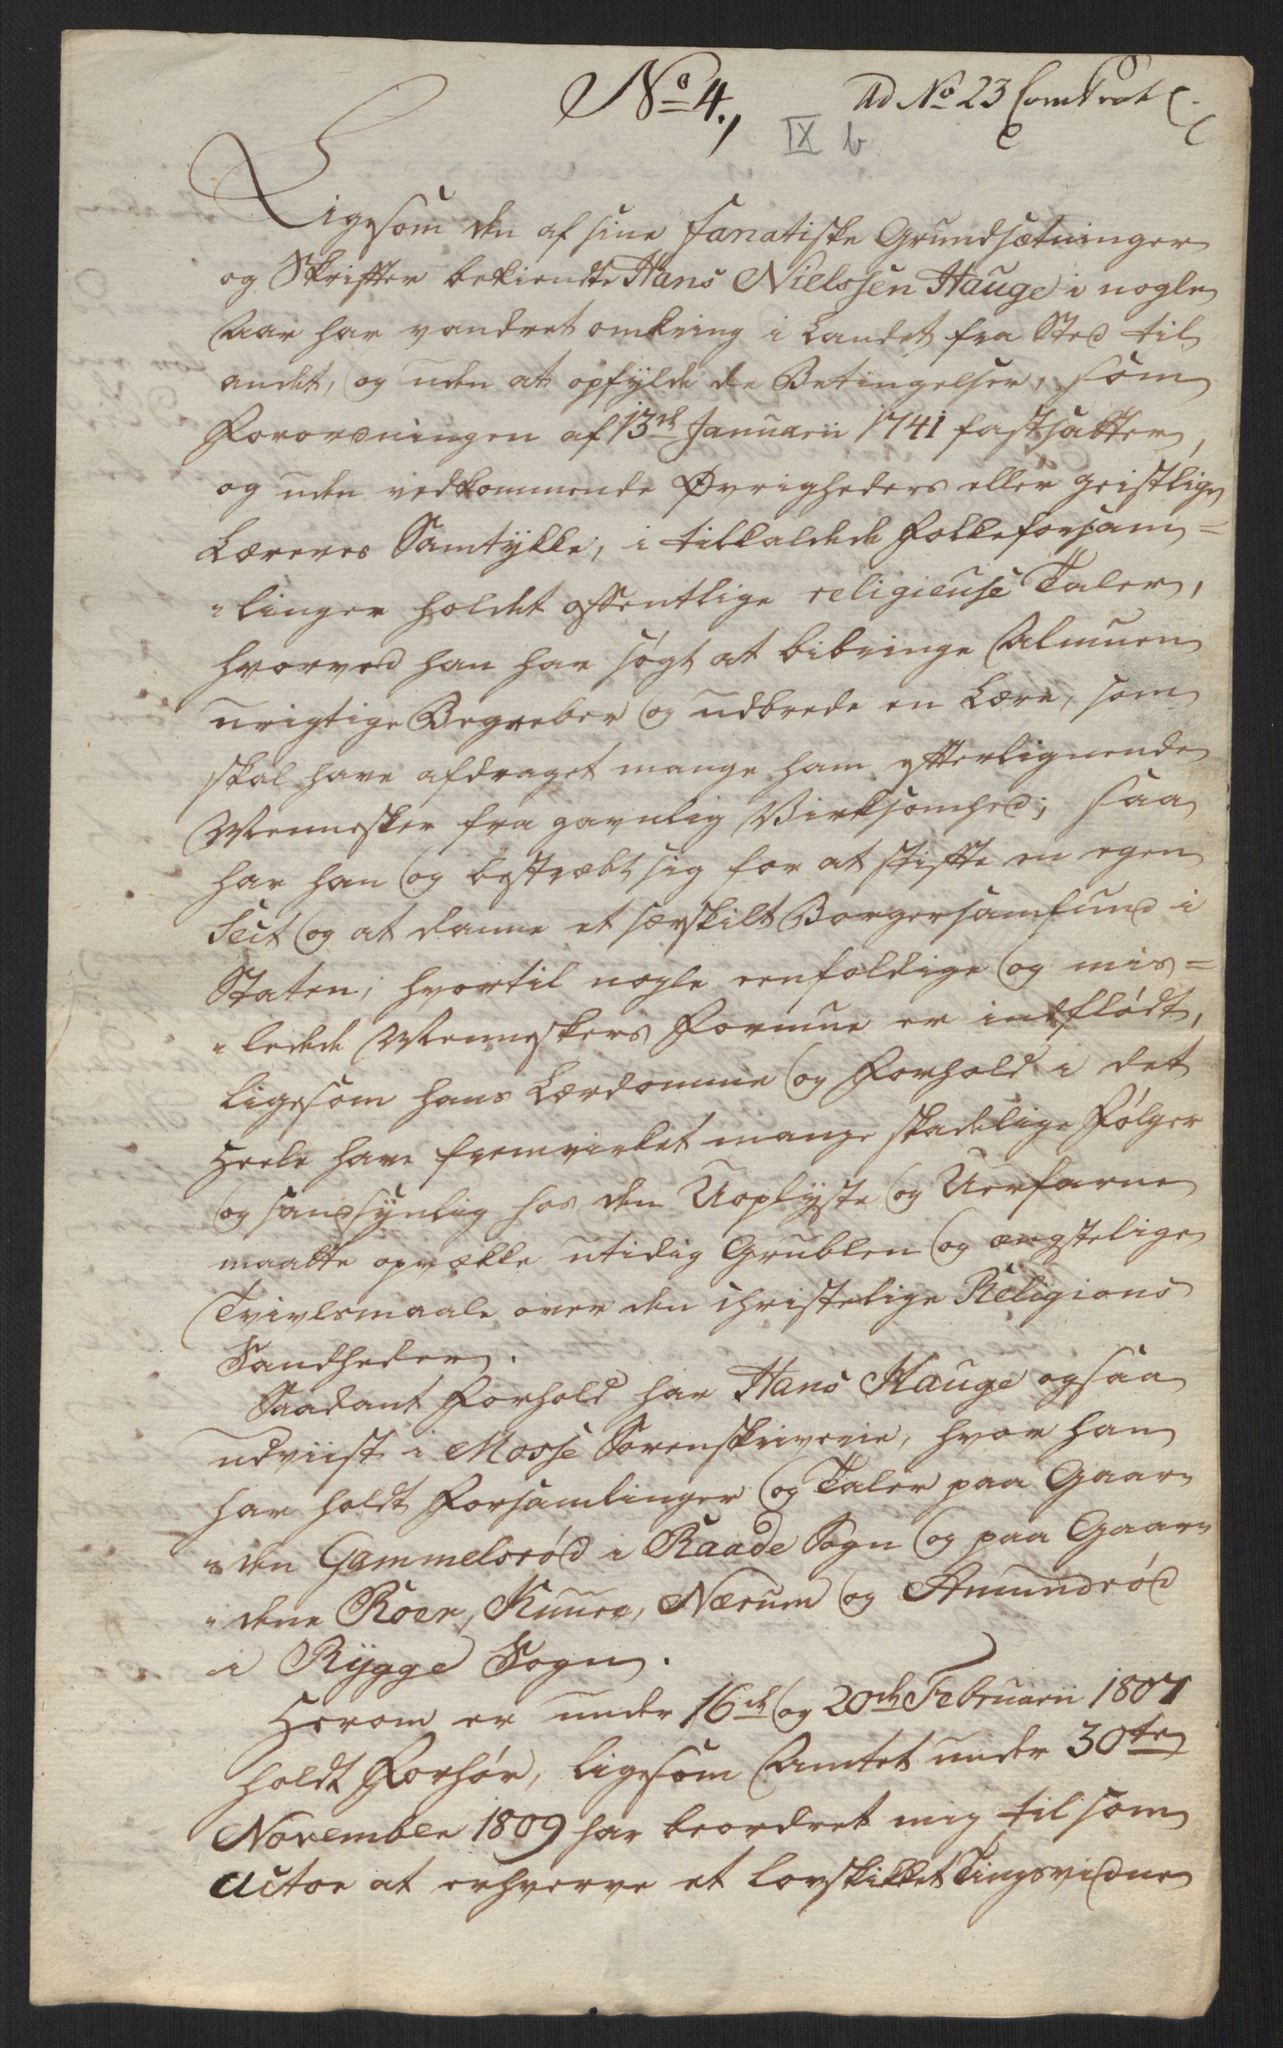 No 4.,
Ad No 23
IX b
Ligesom den af sine fanatiske Grundsætninger
og Skrifter bekiendte Hans Nielssen Hauge i nogle
Aar har vandret omkring i Landet fra Sted til
andet, og uden at opfylde de Betingelser, som
Forordningen af 13de Januarii 1741 fastsætter,
og uden vedkommende Øvrigheders eller geistlige
Læreres Samtykke, i tilkaldede Folkeforsam=
"linger holdet offentlige religieuse Taler,
hvorved han har søgt at bibringe Almuen
urigtige Begreber og udbrede en Lære, som
skal have afdraget mange ham efterlignende
Mennesker fra gavnlig Virksomhed; saa
har han og bestræbt sig for at stifte en egen
Sect og at danne et særskilt Borgersamfund i
Staten, hvortil nogle eenfoldige og mis=
"ledede Menneskers Formue er indflødt,
ligesom hans Lærdomme og Forhold i det
Heele have fremvirket mange skadelige Følger
og sandsynlig hos den Uoplyste og Uerfarne
maatte opvække utidig Grublen og ængstelige
Tvivlsmaale over den christelige Religions
Sandheder.
Saadant Forhold har Hans Hauge ogsaa
udviist i Mosse Sorenskriverie, hvor han
har holdt Forsamlinger og Taler paa Gaar"
"den Gammelsrød i Raade Sogn og paa Gaar"
"dene Roer, Kuure, Nærum og Amundrød
i Rygge Sogn.
Herom er under 16de og 20de Februarii 1807
holdt Forhør, ligesom Amtet under 30te
November 1809 har beordret mig til som
Actor at erhverve et lovskikket Tingsvidne